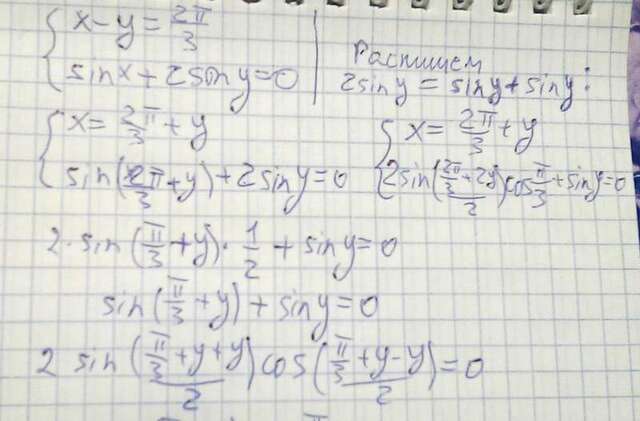 { x - y = 2π/3
sinx + 2siny = 0
Распишем
2siny = siny + siny:
{ x = 2π/3 + y
sin(2π/3 + y) + 2siny = 0
{ x = 2π/3 + y
2sin((2π/3 + 2y)/2)cos π/3 + siny = 0
2·sin(π/3 + y)·1/2 + siny = 0
sin(π/3 + y) + siny = 0
2 sin((π/3 + y + y)/2)cos((π/3 + y - y)/2) = 0